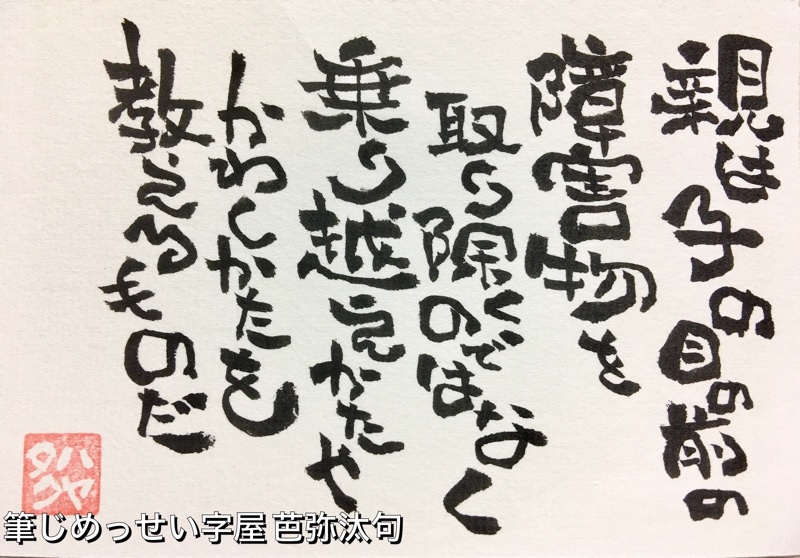 親は子の目の前の
障害物を
取り除くのではなく
乗り越えかたや
かわしかたを
教えるものだ
ハヤ
タク
筆じめっせい字屋 芭弥汰句